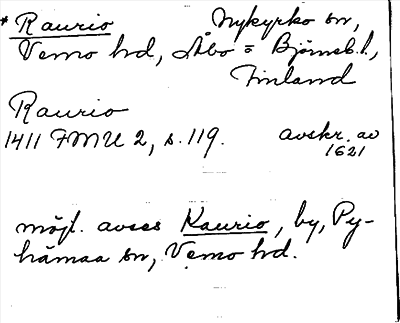 * Raurio Nykyrko sn,
Vemo hd, Åbo = Björneb. l.,
Finland
Raurio
1411 FMU 2, s. 119. avskr. av
1621
möjl. avses Kaurio, by, Py-
hämaa sn, Vemo hd.